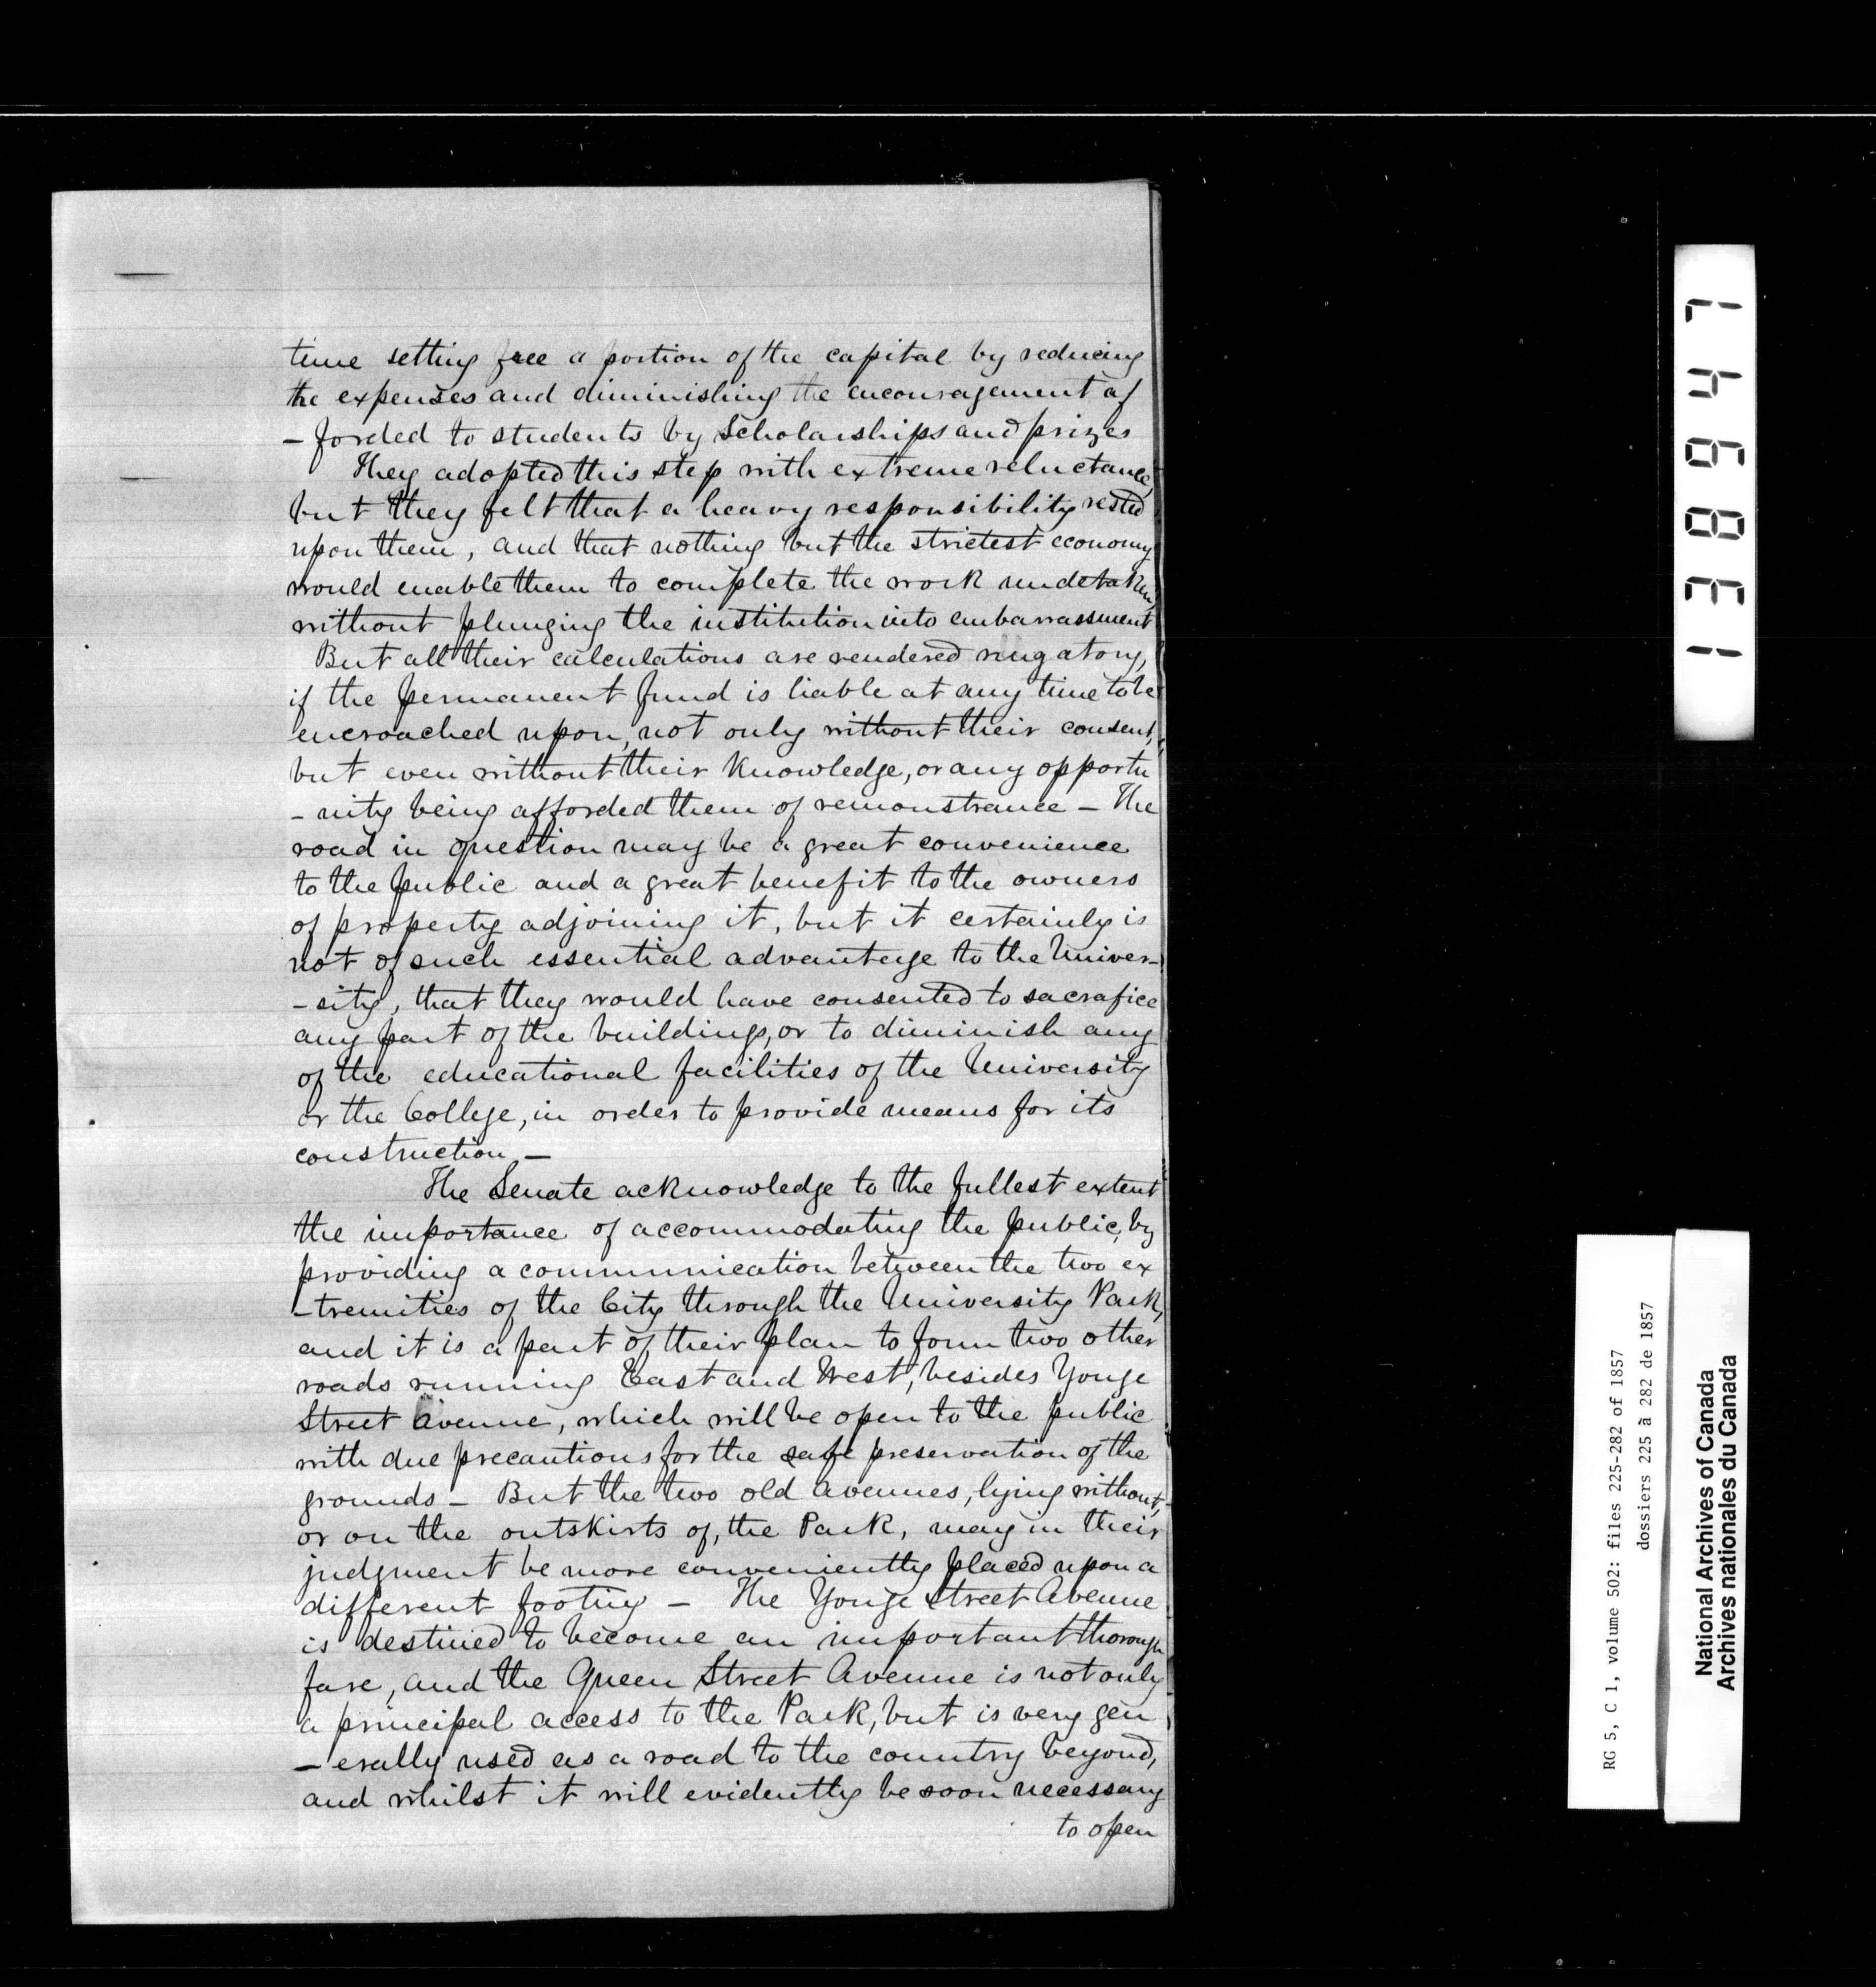 time setting free a portion of the capital by reducing
the expenses and diminishing the encouragement af
- forded to students by Scholarships and prizes
They adopted this step with extreme reluctance,
but they felt that a heavy responsibility rested
upon them, and that nothing but the strictest economy
would enable them to complete the work undetaken,
without plunging the institution into embarrassment
But all their calculations are rendered nugatory,
if the permanent fund is liable at any time to be
encroached upon, not only without their consent,
but even without their knowledge, or any opportu
- nity being afforded them of remonstrance - The
road in question may be a great convenience
to the public and a great benefit to the owners
of property adjoining it, but it certainly is
not of such essential advantage to the Univer-
- sity, that they would have consented to sacrafice
any part of the buildings, or to diminish any
of the educational facilities of the University
or the College, in order to provide means for its
construction. -
The Senate acknowledge to the fullest extent
the importance of accommodating the public, by
providing a communication between the two ex
- tremities of the City through the University Park,
and it is a part of their plan to form two other
roads running East and West, besides Yonge
Street Avenue, which will be open to the public
with due precautions for the safe preservation of the
grounds - But the two old Avenues, lying without,
or on the outskirts of, the Park, may in their
judgment be more conveniently placed upon a
different footing - The Yonge Street Avenue
is destined to become an important thorough
fare, and the Queen Street Avenue is not only
a principal access to the Park, but is very gen
- erally used as a road to the country beyond,
and whilst it will evidently be soon necessary
to open
138947
RG 5, C 1, volume 502: files 225-282 of 1857
dossiers 225 à 282 de 1857
National Archives of Canada
Archives nationales du Canada